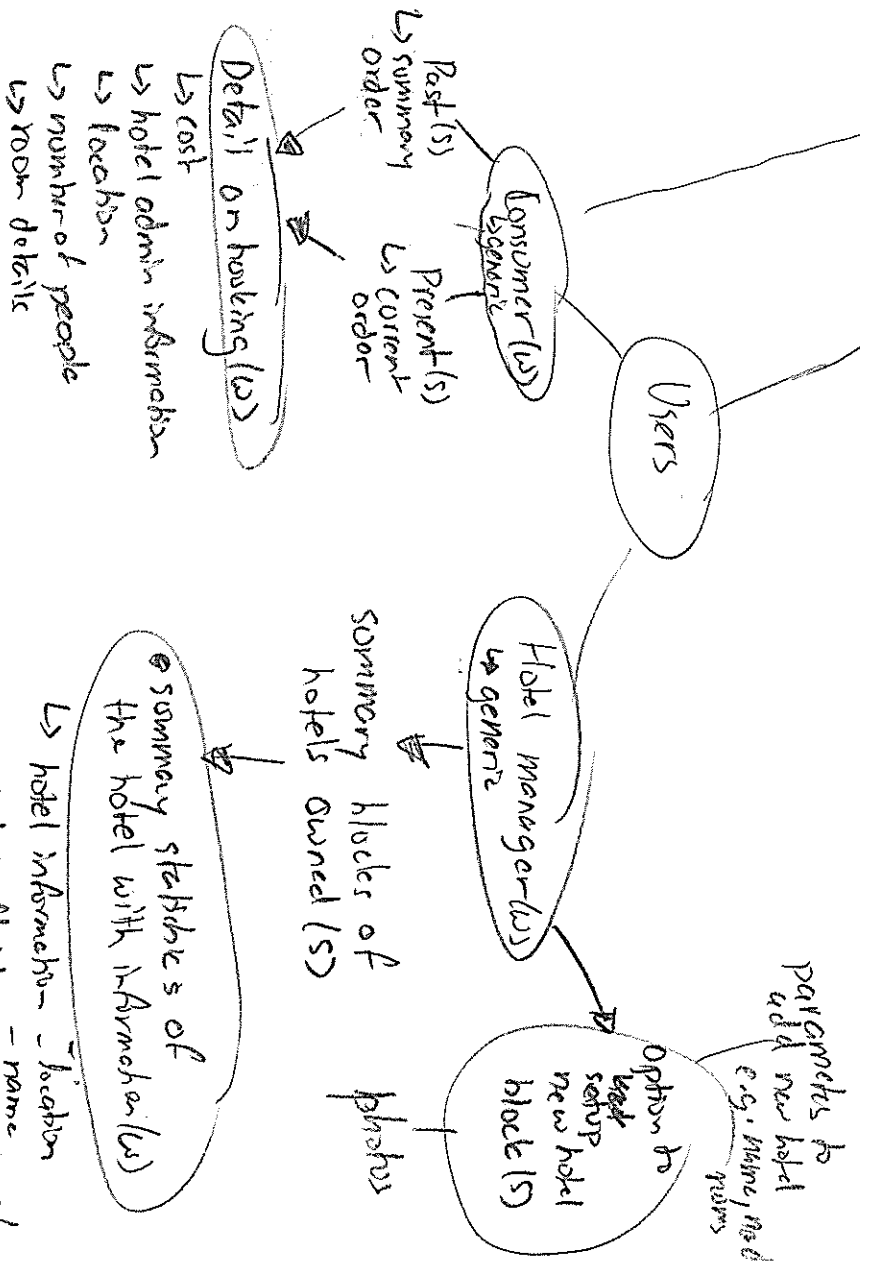 Users
Consumer (w)
↳ generic
Past (s)
↳ summary
order
Present (s)
↳ current
order
Detail on booking (w)
↳ cost
↳ hotel admin information
↳ location
↳ number of people
↳ room details
Hotel manager (w)
↳ generic
summary blocks of
hotels owned (s)
• summary statistics of
the hotel with information (w)
↳ hotel information - location
- name
option to
setup
new hotel
block (s)
parameters to
add new hotel
e.g. name, no of
rooms
photos